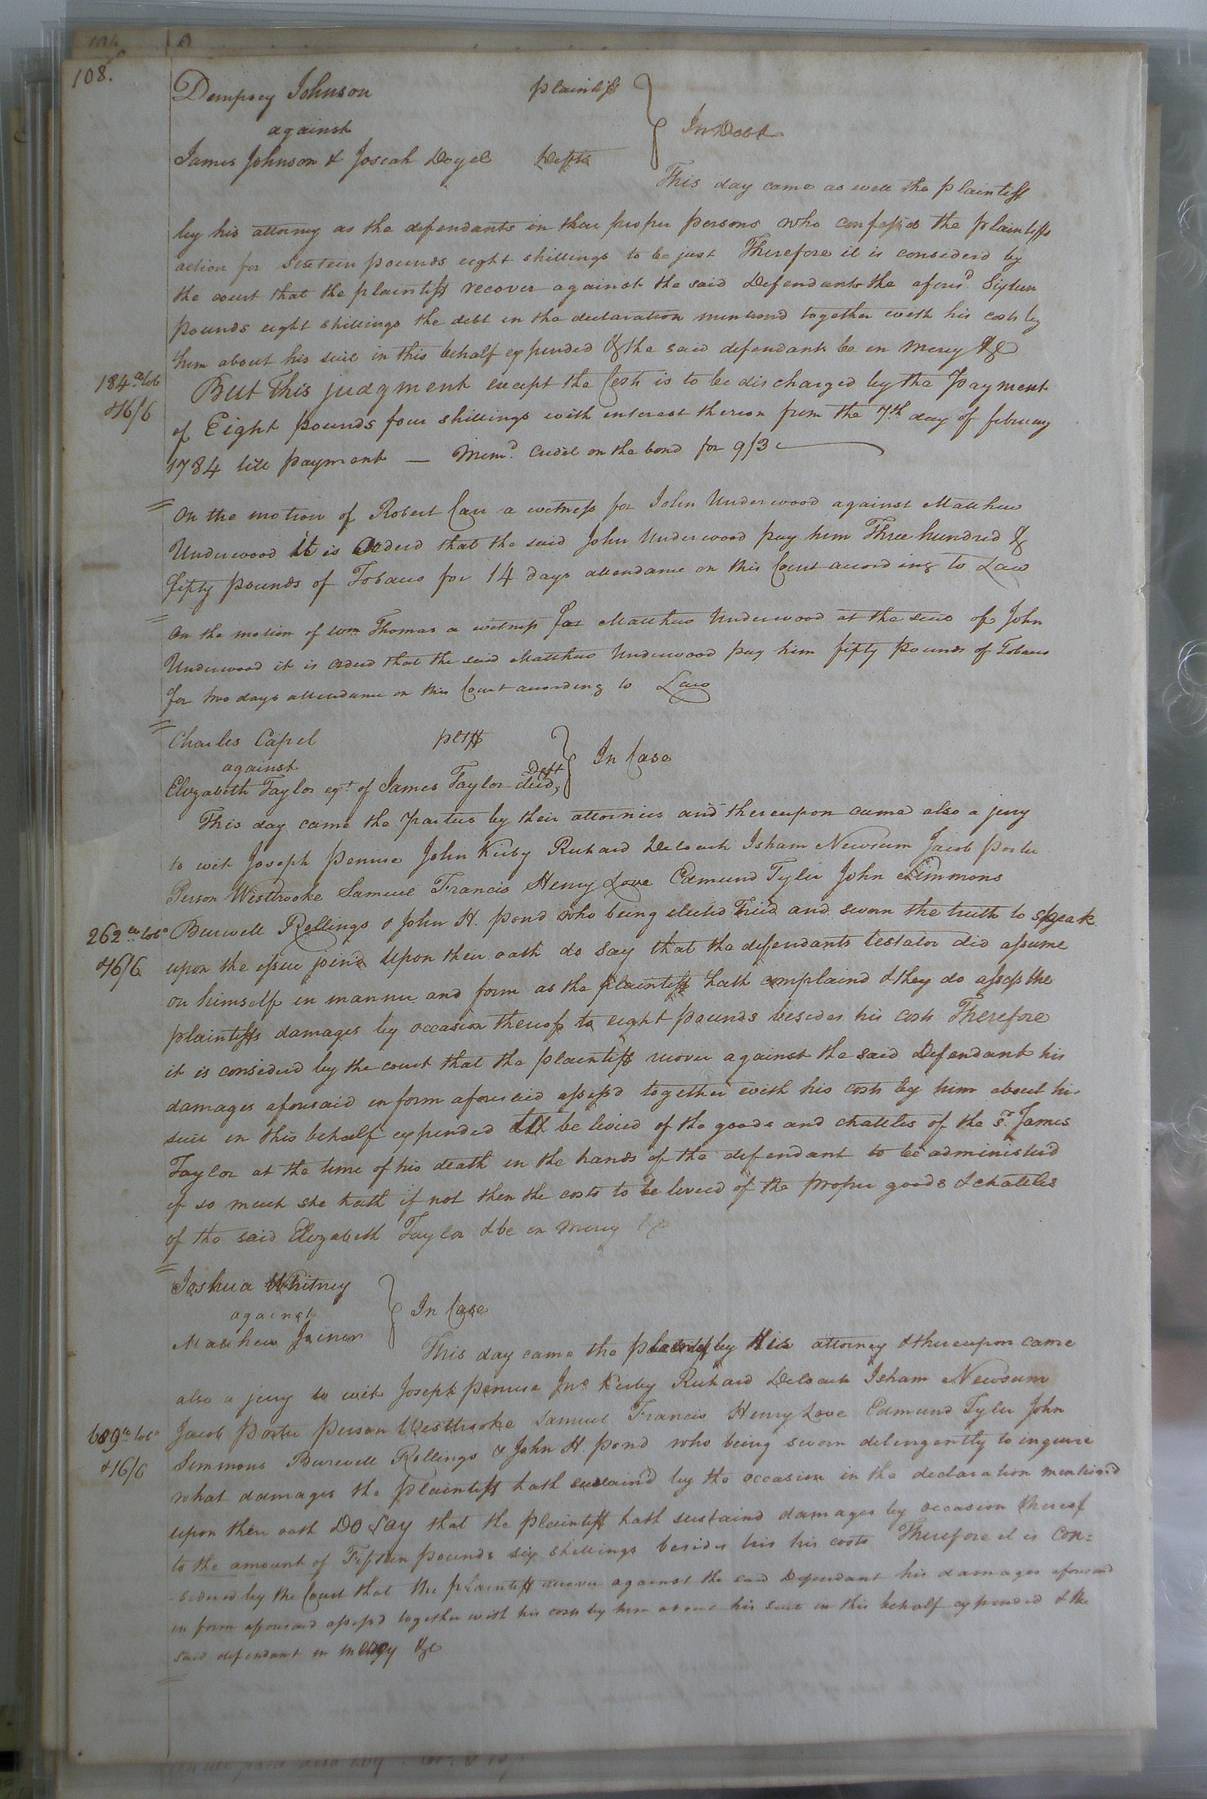 108.
Dempsey Johnson plaintiff
against
In Debt
James Johnson & Josiah Doyel Defts
This day came as well the plaintiff
by his attorney as the defendants in their proper persons who confessed the plaintiffs
action for Sixteen pounds eight shillings to be just Therefore it is considerd by
the court that the plaintiff recover against the said Defendants the aforesd. Sixteen
pounds eight shillings the debt in the declaration mentiond together with his costs by
him about his suit in this behalf expended & the said defendants be in mercy &c
But this judgment except the Costs is to be discharged by the Payment
184 lb
& 16/6
of Eight pounds four shillings with interest thereon from the 7th day of february
1784 till payment — Memd. Credit on the bond for 9/3
On the motion of Robert Carr a witness for John Underwood against Matthew
Underwood it is Ordered that the said John Underwood pay him Three hundred &
fifty pounds of Tobacco for 14 days attendance on this Court according to Law
On the motion of Wm Thomas a witness for Matthew Underwood at the suit of John
Underwood it is ordered that the said Matthew Underwood pay him fifty pounds of Tobacco
for two days attendance on this Court according to Law
Charles Capel pltff
against
In Case
Deft
Elizabeth Taylor exx. of James Taylor decd,
This day came the Parties by their attornies and thereupon came also a jury
to wit Joseph Pennie John Kirby Richard Deloach Isham Newsum Jacob Porter
Person Westbrooke Samuel Francis Henry Love Edmund Tyler John Simmons
Burwell Rollings & John H. Pond who being elected tried and sworn the truth to speak
262 lb
& 16/6
upon the issue joind upon their oath do say that the defendants testator did assume
on himself in manner and form as the plaintiff hath complaind & they do assess the
plaintiffs damages by occasion thereof to eight pounds besides his costs Therefore
it is considerd by the court that the plaintiff recover against the said Defendant his
damages aforesaid in form aforesaid assess'd together with his costs by him about his
suit in this behalf expended to be levied of the goods and chattles of the sd. James
Taylor at the time of his death in the hands of the defendant to be administerd
if so much she hath if not then the costs to be levied of the proper goods & chattles
of the said Elizabeth Taylor & be in mercy &c
Joshua Whitney
against
In Case
Matthew Joiner
This day came the plaintiff by his attorney & thereupon came
also a jury to wit Joseph Pennie Jno Kirby Richard Deloach Isham Newsum
Jacob Porter Person Westbrooke Samuel Francis Henry Love Edmund Tyler John
689 lb
& 16/6
Simmons Burwell Rollings & John H. Pond who being sworn deligently to inquire
what damages the plaintiff hath sustaind by the occasion in the declaration mentioned
upon their oath Do say that the plaintiff hath sustaind damages by occasion thereof
to the amount of Fifteen pounds six shillings besides his his costs Therefore it is Con=
siderd by the Court that the plaintiff recover against the said Defendant his damages aforesaid
in form aforesaid assess'd together with his costs by him about his suit in this behalf expended & the
said defendant in mercy &c